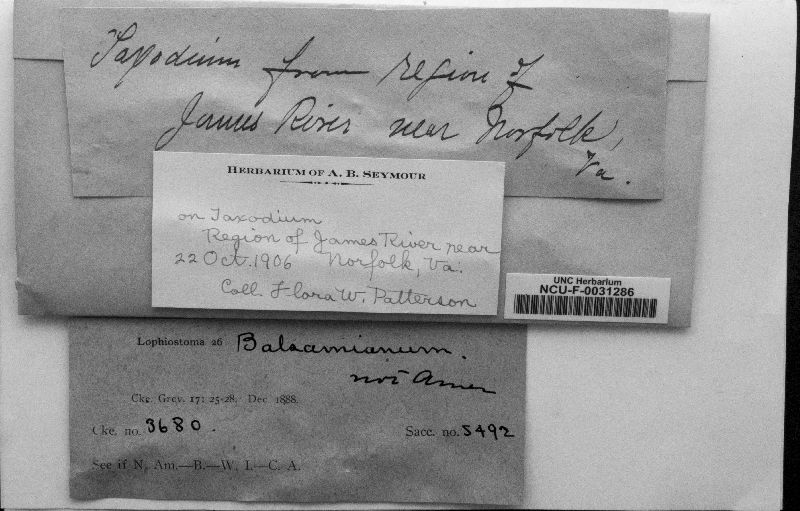 Taxodium from region of
James River near Norfolk,
Va.
HERBARIUM OF A. B. SEYMOUR
on Taxodium
Region of James River near
22 Oct. 1906 Norfolk, Va.
Coll. Flora W. Patterson
UNC Herbarium
NCU-F-0031286
Lophiostoma 26 Balsamianum.
not Amer
Cke. Grev. 17: 25-28. Dec 1888.
Cke. no. 3680.
Sacc. no. 5492
See if N. Am.—B.—W. I.—C. A.